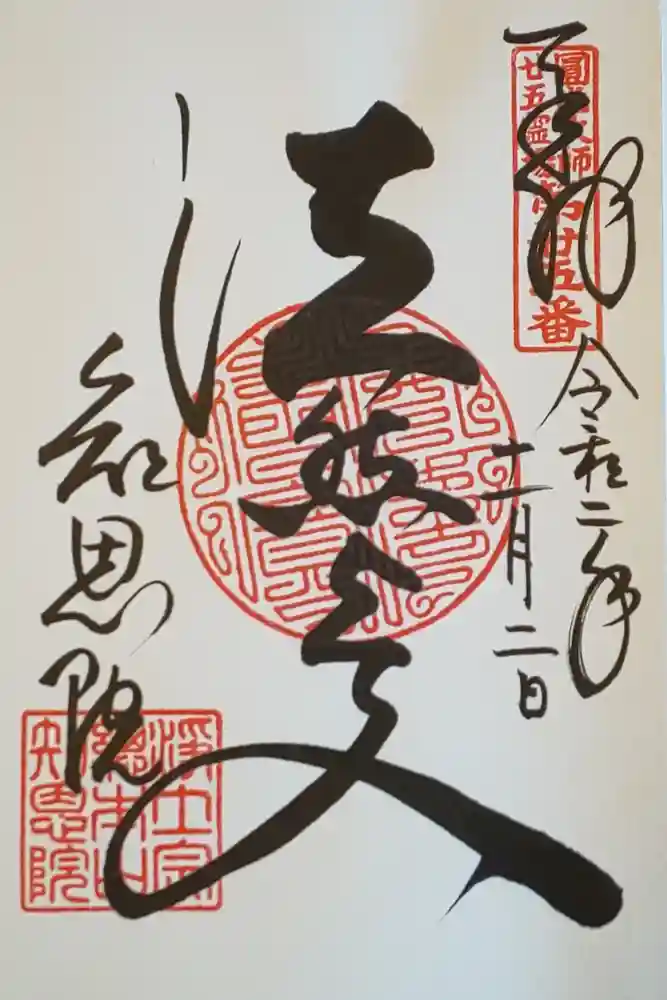 奉拝
圓光大師
廿五靈場第廿五番
令和二年
十一月二日
法然上人
知恩院
淨土宗
總本山
知恩院